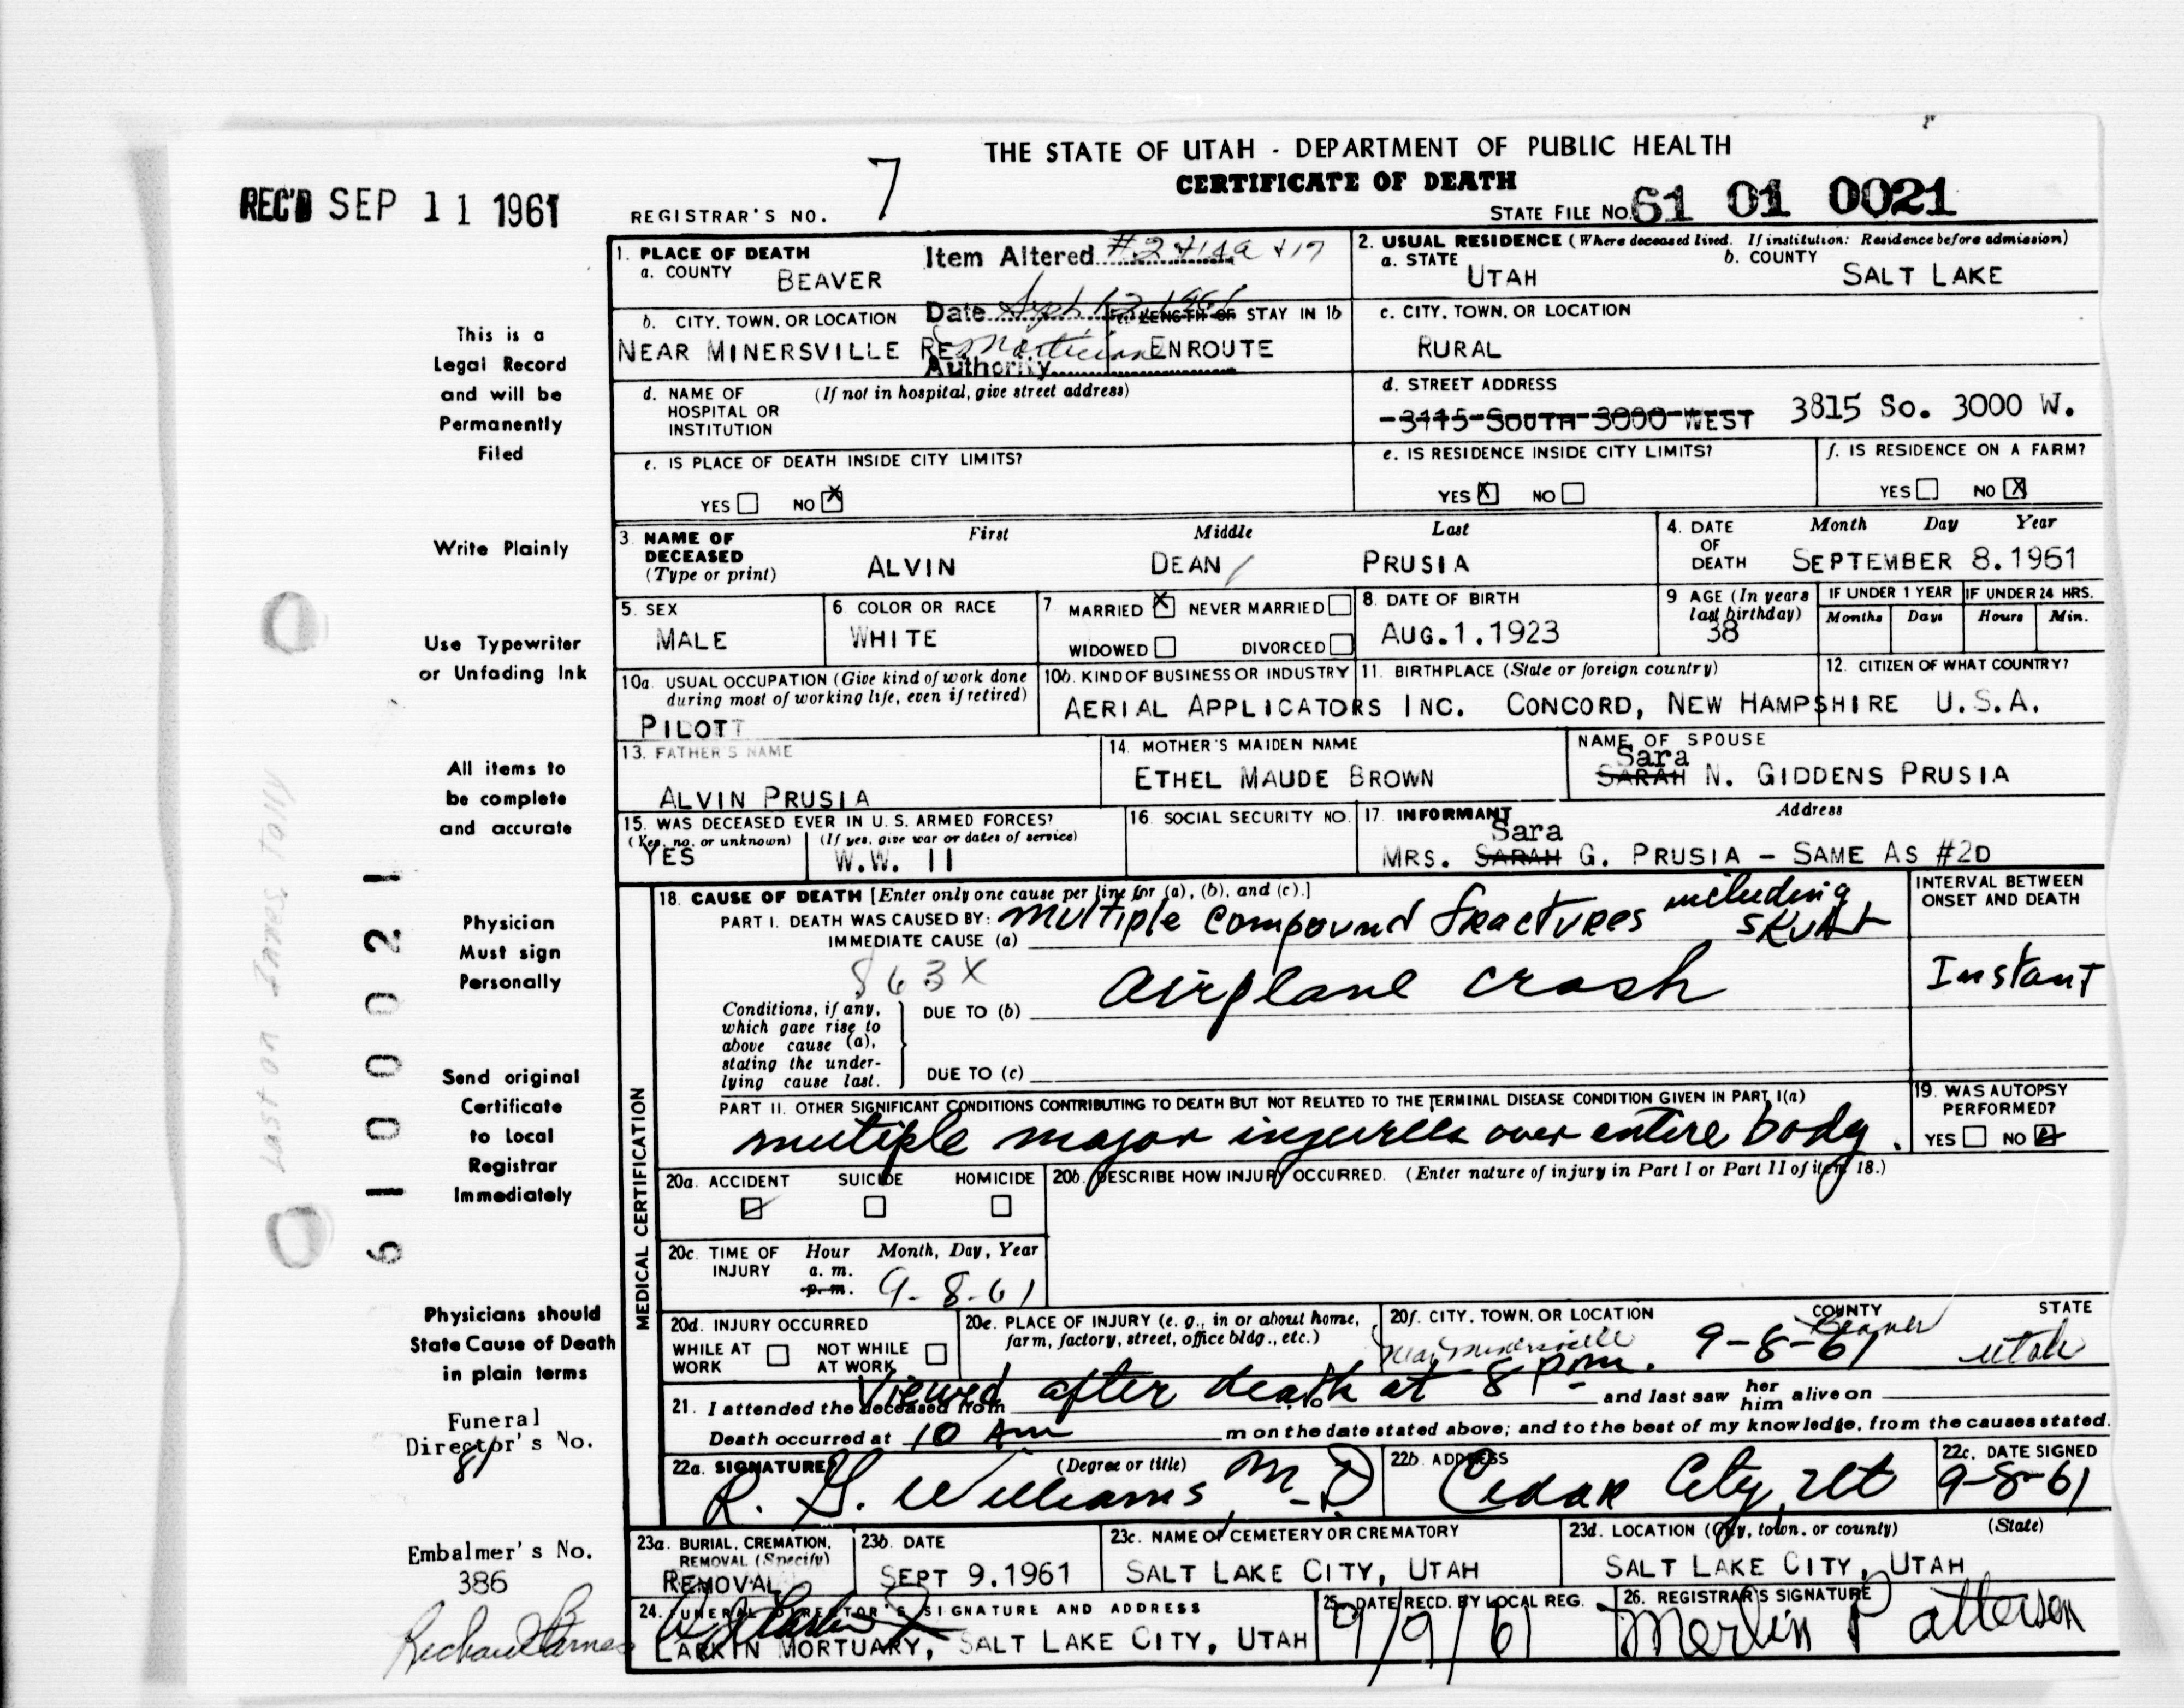 THE STATE OF UTAH - DEPARTMENT OF PUBLIC HEALTH
CERTIFICATE OF DEATH
REC'D SEP 11 1961
REGISTRAR'S NO. 7
STATE FILE NO. 61 01 0021
1. PLACE OF DEATH
a. COUNTY BEAVER
Item Altered #2 +14a +17
Date Sept 12 1961
Authority Mortician
2. USUAL RESIDENCE (Where deceased lived. If institution: Residence before admission)
a. STATE UTAH
b. COUNTY SALT LAKE
b. CITY, TOWN, OR LOCATION
NEAR MINERSVILLE
c. LENGTH OF STAY IN 1b
ENROUTE
c. CITY, TOWN, OR LOCATION
RURAL
d. NAME OF HOSPITAL OR INSTITUTION (If not in hospital, give street address)
d. STREET ADDRESS
SOUTH 3000 WEST 3815 So. 3000 W.
e. IS PLACE OF DEATH INSIDE CITY LIMITS?
YES NO X
e. IS RESIDENCE INSIDE CITY LIMITS?
YES X NO
f. IS RESIDENCE ON A FARM?
YES NO X
3. NAME OF DECEASED (Type or print)
First Middle Last
ALVIN DEAN PRUSIA
4. DATE OF DEATH Month Day Year
SEPTEMBER 8.1961
5. SEX
MALE
6. COLOR OR RACE
WHITE
7. MARRIED X NEVER MARRIED
WIDOWED DIVORCED
8. DATE OF BIRTH
AUG.1.1923
9. AGE (In years last birthday)
38
IF UNDER 1 YEAR IF UNDER 24 HRS.
Months Days Hours Min.
10a. USUAL OCCUPATION (Give kind of work done during most of working life, even if retired)
PILOTT
10b. KIND OF BUSINESS OR INDUSTRY
AERIAL APPLICATORS INC.
11. BIRTHPLACE (State or foreign country)
CONCORD, NEW HAMPSHIRE
12. CITIZEN OF WHAT COUNTRY?
U.S.A.
13. FATHER'S NAME
ALVIN PRUSIA
14. MOTHER'S MAIDEN NAME
ETHEL MAUDE BROWN
NAME OF SPOUSE
Sara
SARAH N. GIDDENS PRUSIA
15. WAS DECEASED EVER IN U.S. ARMED FORCES?
(Yes, no, or unknown) (If yes, give war or dates of service)
YES W.W. II
16. SOCIAL SECURITY NO.
17. INFORMANT Address
Sara
MRS. SARAH G. PRUSIA - SAME AS #2D
MEDICAL CERTIFICATION
18. CAUSE OF DEATH [Enter only one cause per line for (a), (b), and (c).]
PART I. DEATH WAS CAUSED BY:
IMMEDIATE CAUSE (a) multiple compound fractures including skull
INTERVAL BETWEEN ONSET AND DEATH
863X
Conditions, if any, which gave rise to above cause (a), stating the underlying cause last.
DUE TO (b) airplane crash
Instant
DUE TO (c)
PART II. OTHER SIGNIFICANT CONDITIONS CONTRIBUTING TO DEATH BUT NOT RELATED TO THE TERMINAL DISEASE CONDITION GIVEN IN PART I(a)
multiple major injuries over entire body.
19. WAS AUTOPSY PERFORMED?
YES NO
20a. ACCIDENT SUICIDE HOMICIDE
20b. DESCRIBE HOW INJURY OCCURRED. (Enter nature of injury in Part I or Part II of item 18.)
20c. TIME OF INJURY Hour Month, Day, Year
a. m.
p. m. 9-8-61
20d. INJURY OCCURRED
WHILE AT WORK NOT WHILE AT WORK
20e. PLACE OF INJURY (e. g., in or about home, farm, factory, street, office bldg., etc.)
20f. CITY, TOWN, OR LOCATION COUNTY STATE
near Minersville Beaver Utah
21. I attended the deceased from Viewed after death at 8 pm. 9-8-61 to and last saw her him alive on
Death occurred at 10 Am m on the date stated above; and to the best of my knowledge, from the causes stated.
22a. SIGNATURE (Degree or title)
R. G. Williams M.D
22b. ADDRESS
Cedar City, Ut
22c. DATE SIGNED
9-8-61
23a. BURIAL, CREMATION, REMOVAL (Specify)
REMOVAL
23b. DATE
SEPT 9.1961
23c. NAME OF CEMETERY OR CREMATORY
SALT LAKE CITY, UTAH
23d. LOCATION (City, town, or county) (State)
SALT LAKE CITY, UTAH
24. FUNERAL DIRECTOR'S SIGNATURE AND ADDRESS
LARKIN MORTUARY, SALT LAKE CITY, UTAH
25. DATE RECD. BY LOCAL REG.
9/9/61
26. REGISTRAR'S SIGNATURE
Merlin Patterson
This is a
Legal Record
and will be
Permanently
Filed
Write Plainly
Use Typewriter
or Unfading Ink
All items to
be complete
and accurate
Physician
Must sign
Personally
Send original
Certificate
to Local
Registrar
Immediately
Physicians should
State Cause of Death
in plain terms
Funeral
Director's No.
81
Embalmer's No.
386
Richard Barnes
6100021
Last on